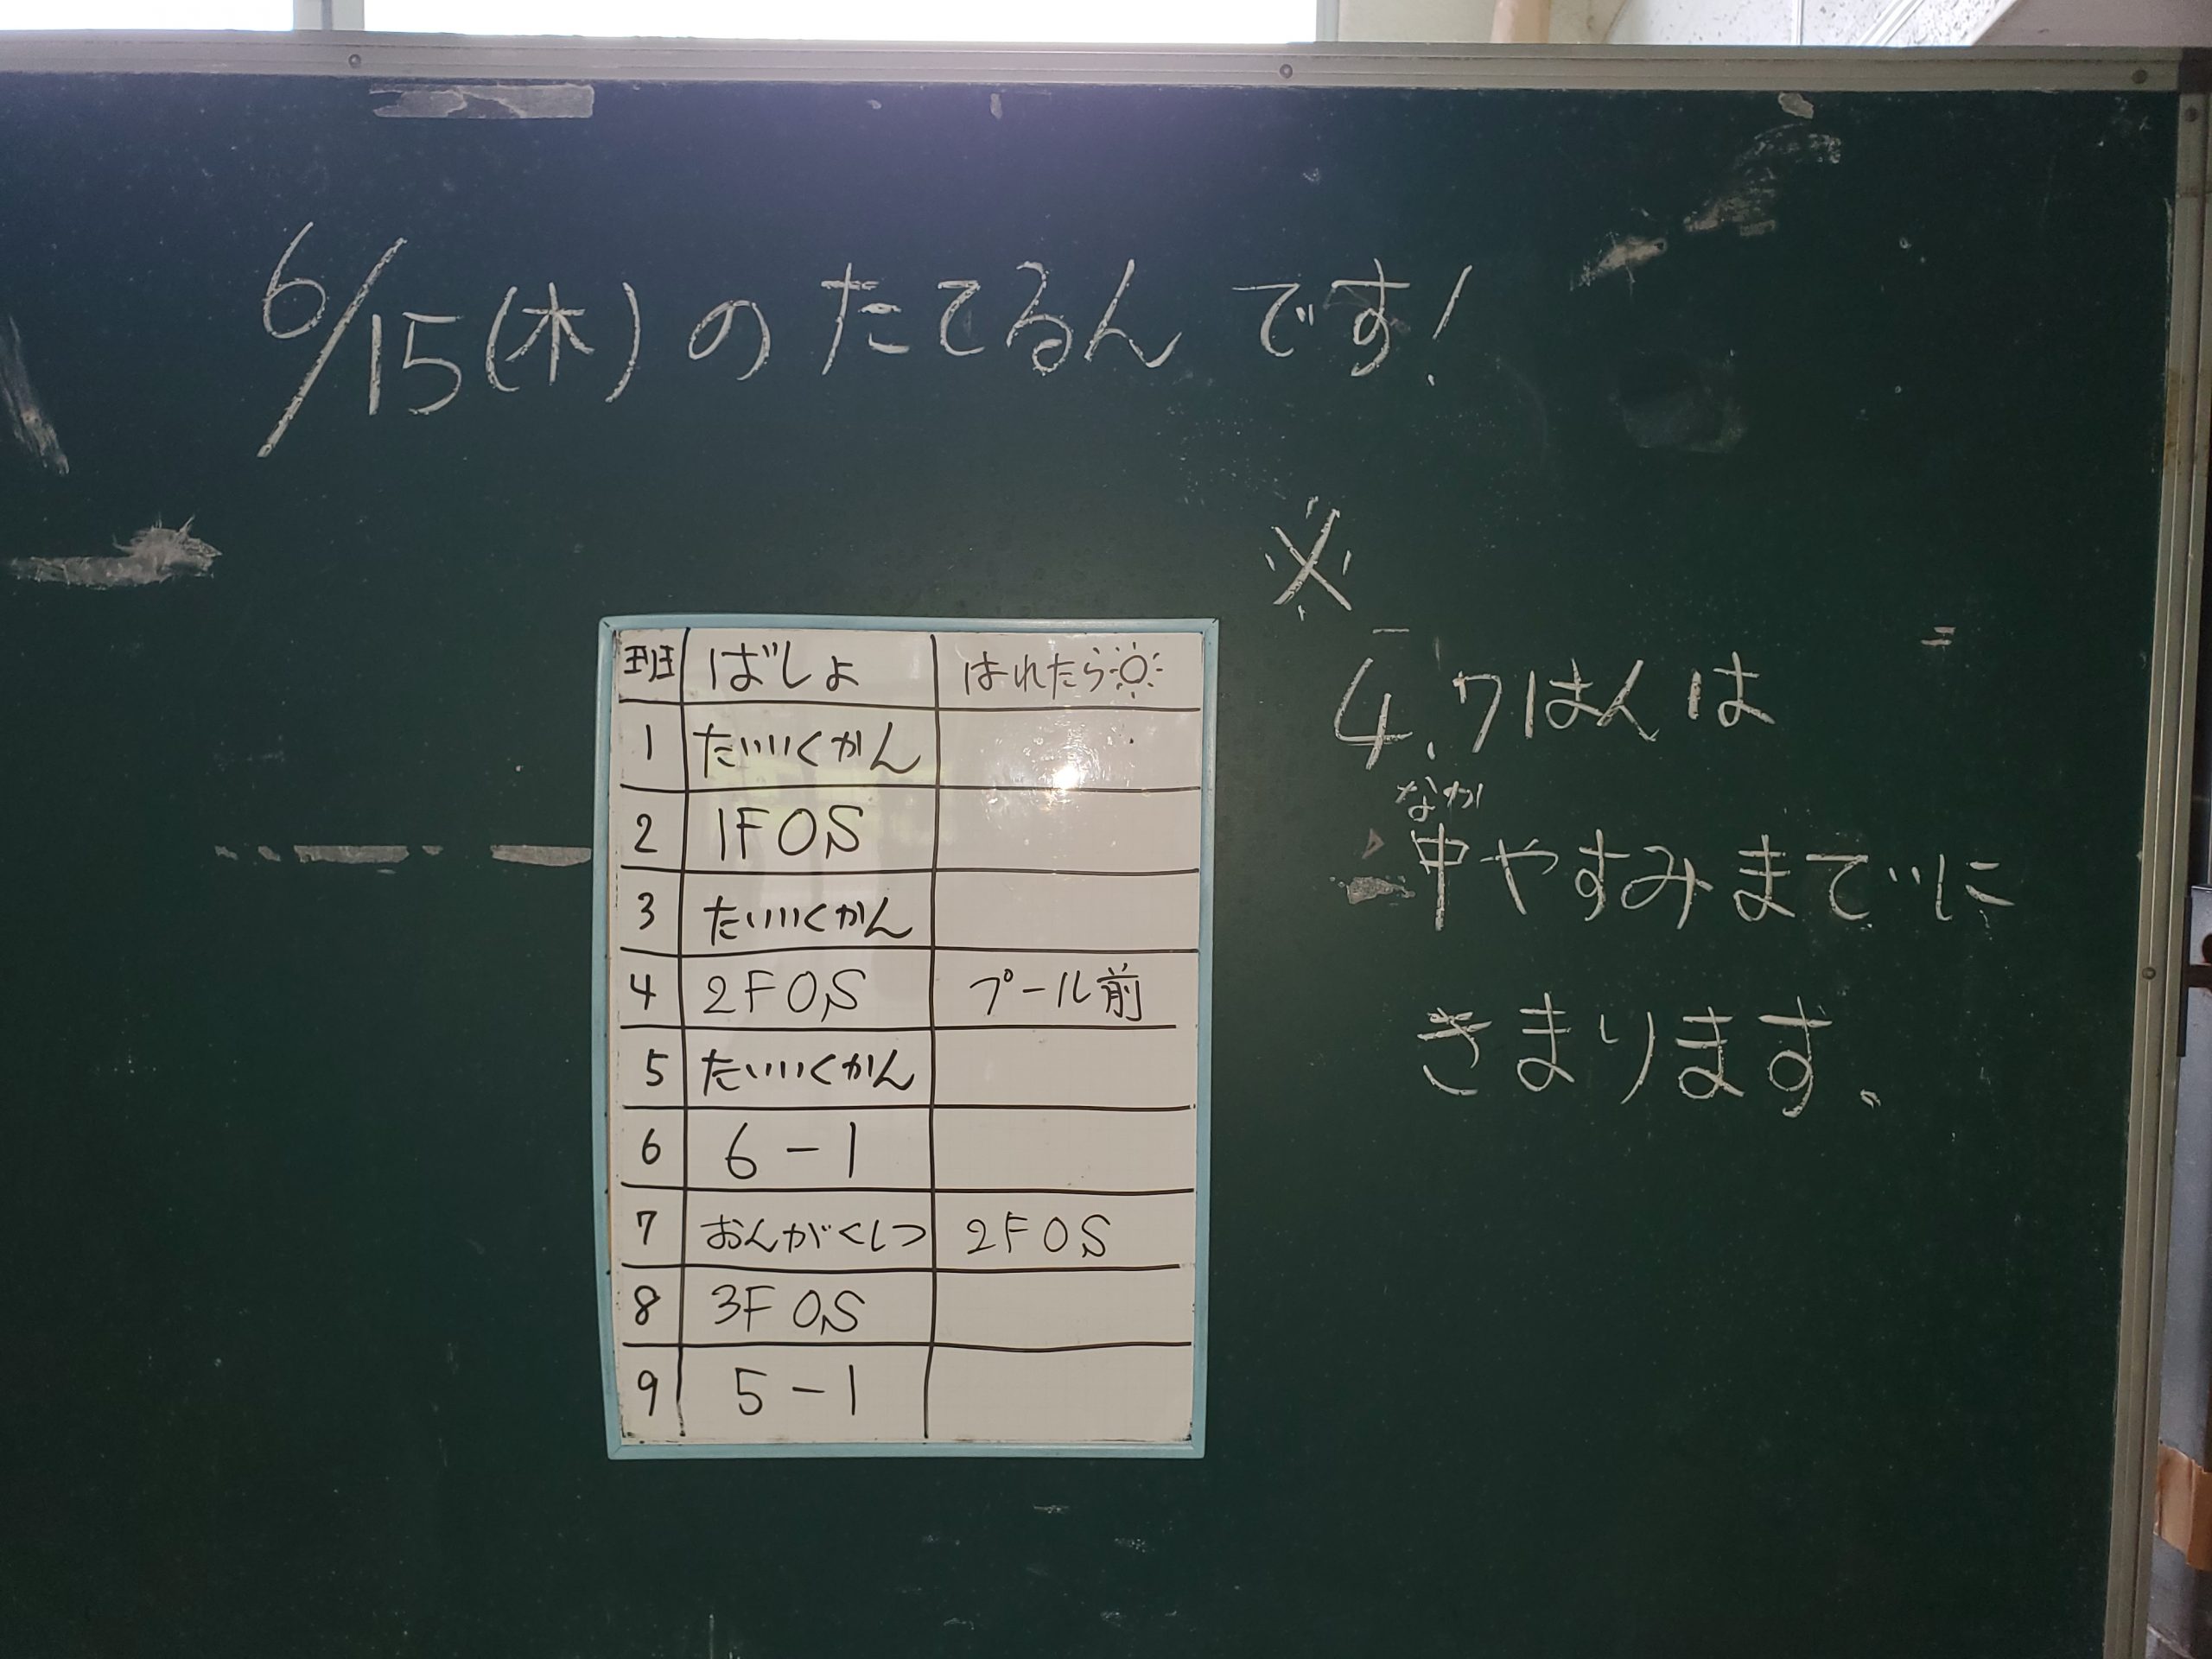 6/15(木)のたてるんです!
班 ばしょ はれたら
1 たいいくかん
2 1FOS
3 たいいくかん
4 2FOS プール前
5 たいいくかん
6 6-1
7 おんがくしつ 2FOS
8 3FOS
9 5-1
※
4.7はんは
なか
中やすみまでに
きまります。